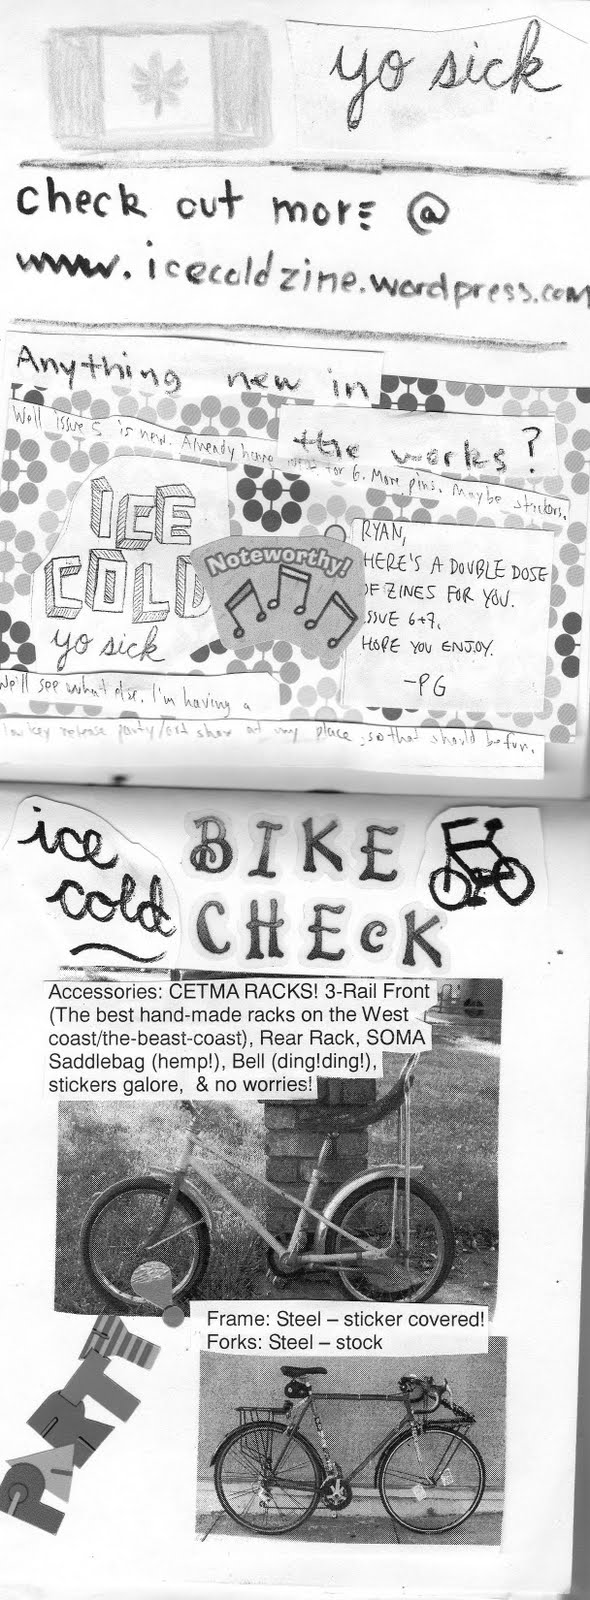 yo sick
check out more @
www.icecoldzine.wordpress.com
Anything new in
the works?
Well issue 5 is new. Already have for 6. More pins. Maybe stickers.
ICE
COLD
yo sick
Noteworthy!
RYAN,
HERE'S A DOUBLE DOSE
OF ZINES FOR YOU.
ISSUE 6+7.
HOPE YOU ENJOY.
-PG
We'll see what else. I'm having a
low key release party/art show at my place, so that should be fun.
ice
cold
BIKE
CHEcK
Accessories: CETMA RACKS! 3-Rail Front
(The best hand-made racks on the West
coast/the-beast-coast), Rear Rack, SOMA
Saddlebag (hemp!), Bell (ding!ding!),
stickers galore, & no worries!
Frame: Steel – sticker covered!
Forks: Steel – stock
PARTY!